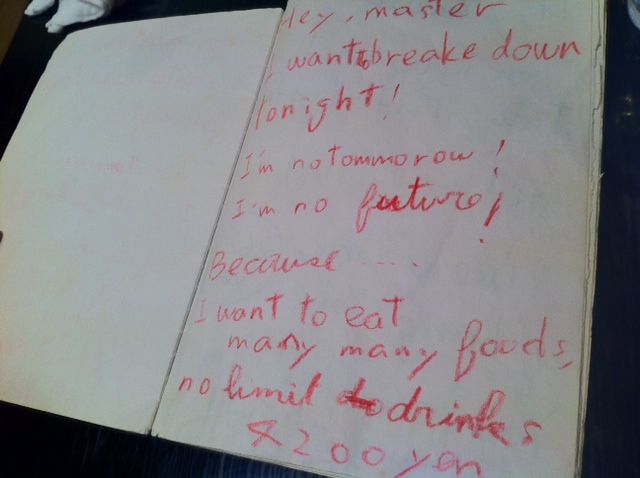 Hey, master
I want to breake down
tonight!
I'm no tommorow!
I'm no future!
Because ....
I want to eat
many many foods,
no limit drinks
4200 yen